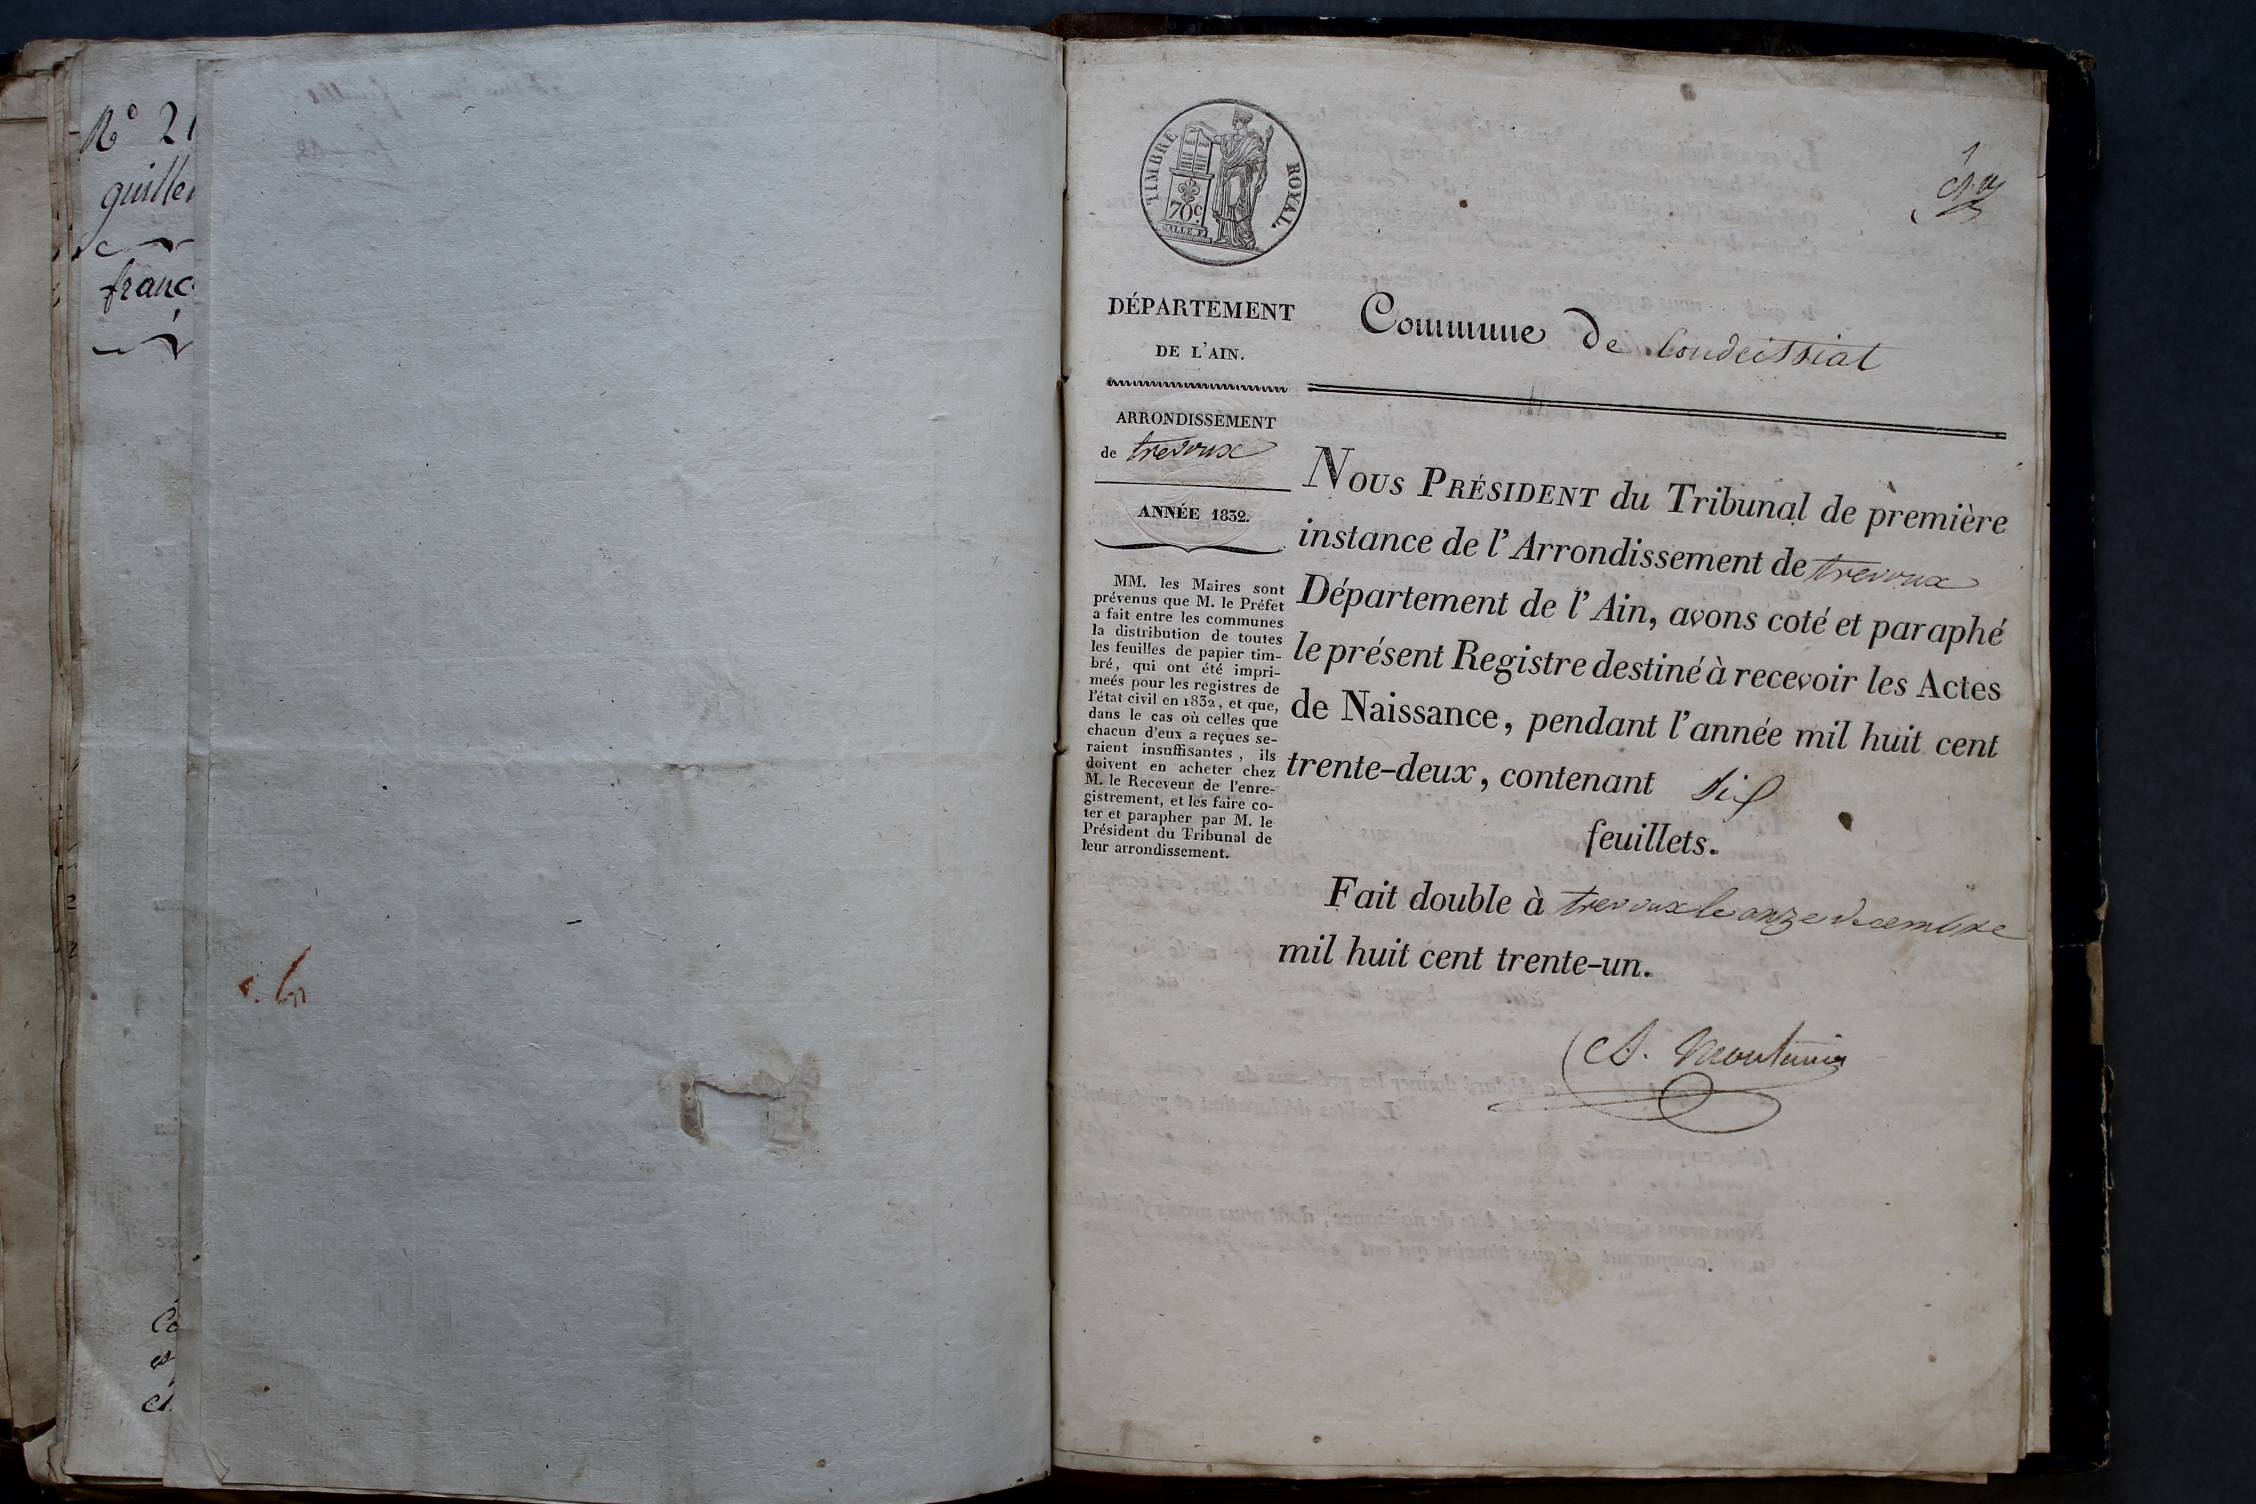 N.º 21
guille
franc
TIMBRE ROYAL.
70c.
1
DÉPARTEMENT
DE L'AIN.
Commune de Condeissiat
ARRONDISSEMENT
de trevoux
ANNÉE 1832.
MM. les Maires sont
prévenus que M. le Préfet
a fait entre les communes
la distribution de toutes
les feuilles de papier tim-
bré, qui ont été impri-
meés pour les registres de
l'état civil en 1832, et que,
dans le cas où celles que
chacun d'eux a reçues se-
raient insuffisantes, ils
doivent en acheter chez
M. le Receveur de l'enre-
gistrement, et les faire co-
ter et parapher par M. le
Président du Tribunal de
leur arrondissement.
NOUS PRÉSIDENT du Tribunal de première
instance de l'Arrondissement de trevoux
Département de l'Ain, avons coté et paraphé
le présent Registre destiné à recevoir les Actes
de Naissance, pendant l'année mil huit cent
trente-deux, contenant six
feuillets.
Fait double à trevoux le onze decembre
mil huit cent trente-un.